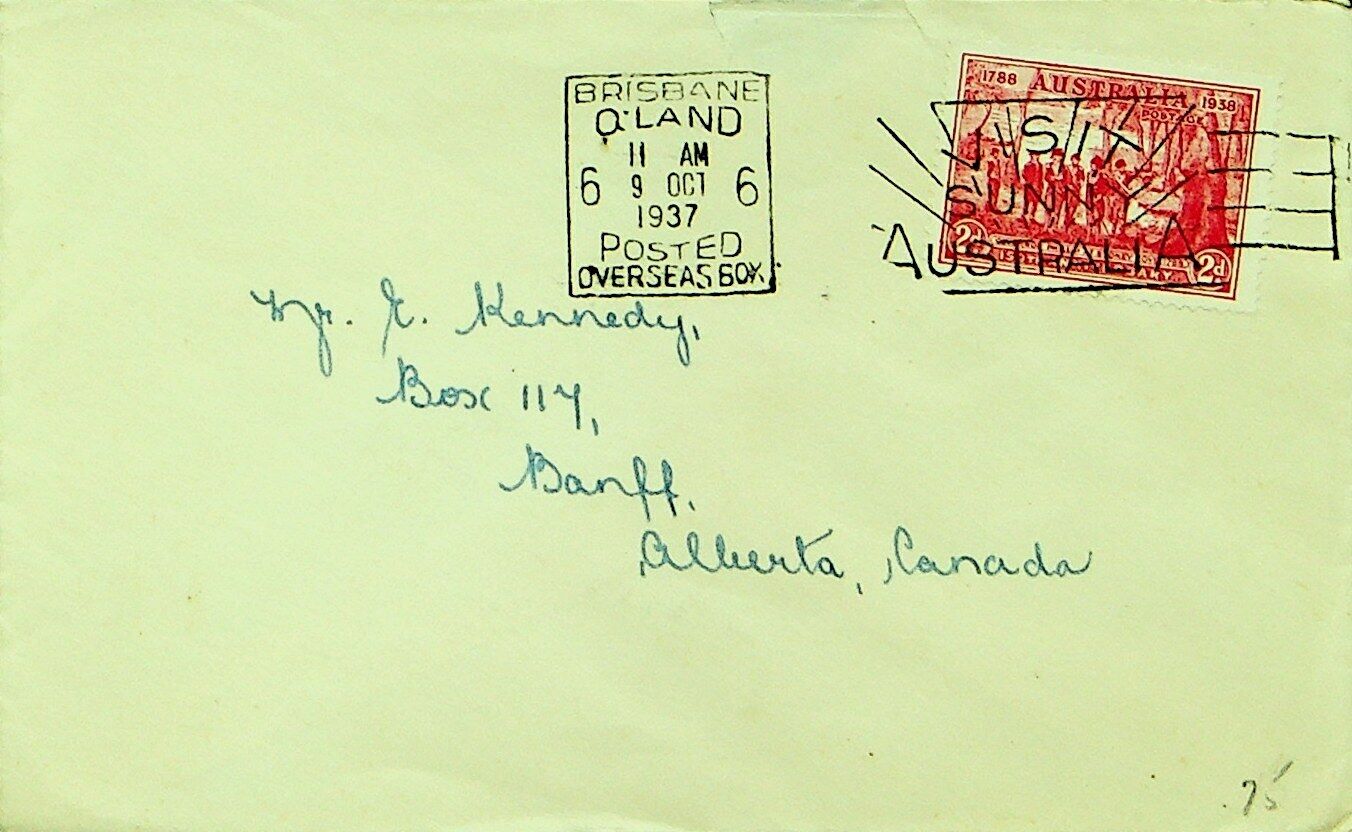 BRISBANE
Q'LAND
11 AM
6 9 OCT 6
1937
POSTED
OVERSEAS BOX.
1788 AUSTRALIA 1938
POSTAGE
VISIT
SUNNY
AUSTRALIA
2d 2d
Mr. E. Kennedy,
Box 117,
Banff,
Alberta, Canada
.75